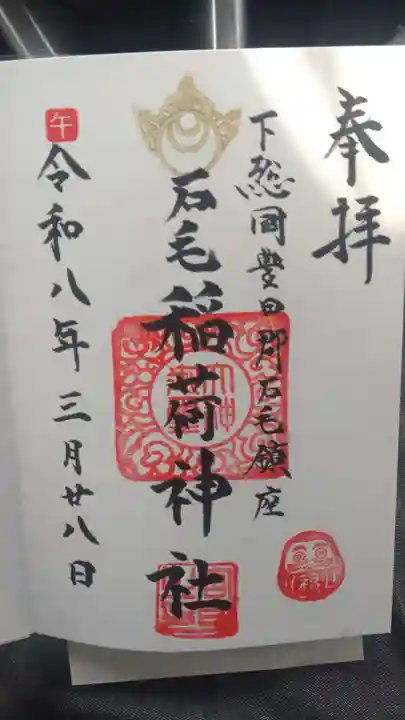 奉拝
下総国豊田郡石毛鎮座
石毛稲荷神社
午
令和八年三月廿八日